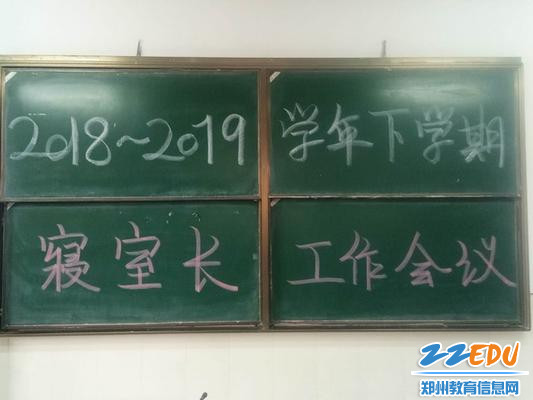 2018~2019 学年下学期
寝室长 工作会议
ZZEDU
郑州教育信息网